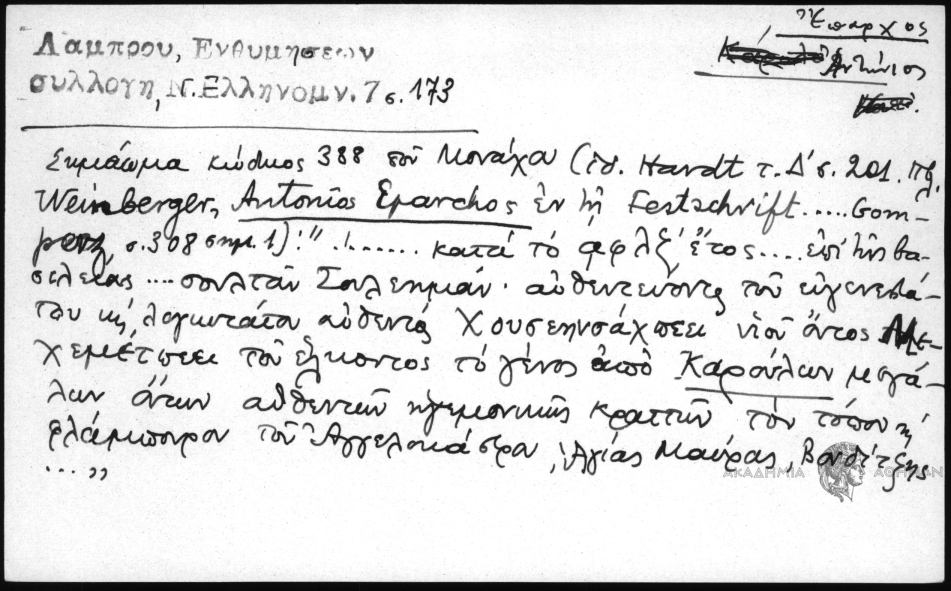 Ἔπαρχος
Ἀντώνιος
Λαμπρου, Ενθυμησεων
συλλογη, Ν. Ελληνομν. 7 σ. 173
Σημείωμα κώδικος 388 τοῦ Μονάχου (ἰδ. Hardt τ. Δ' σ. 201. πβλ.
Weinberger, Antonios Eparchos ἐν τῇ Festschrift ..... Gom-
perz σ. 308 σημ. 1): "....... κατά τό ͵αφλζ' ἔτος .... ἐπί τῆς βα-
σιλείας .... σουλτάν Σουλεημιάν· αὐθεντεύοντος τοῦ εὐγενεστά-
του κ λογιωτάτου αὐθεντός Χουσεηνσάχπεει υἱοῦ ὄντος Με-
χεμέτπεει τοῦ ἕλκοντος τό γένος ἀπό Καρούλων μεγά-
λων ὄντων αὐθεντῶν ἡγεμονικῶς κρατῶν τόν τόπον κ
φλάμπουρον τοῦ Ἀγγελοκάστρου, Ἁγίας Μαύρας, Βονδίτζης
.... "
ΑΚΑΔΗΜΙΑ ΑΘΗΝΩΝ